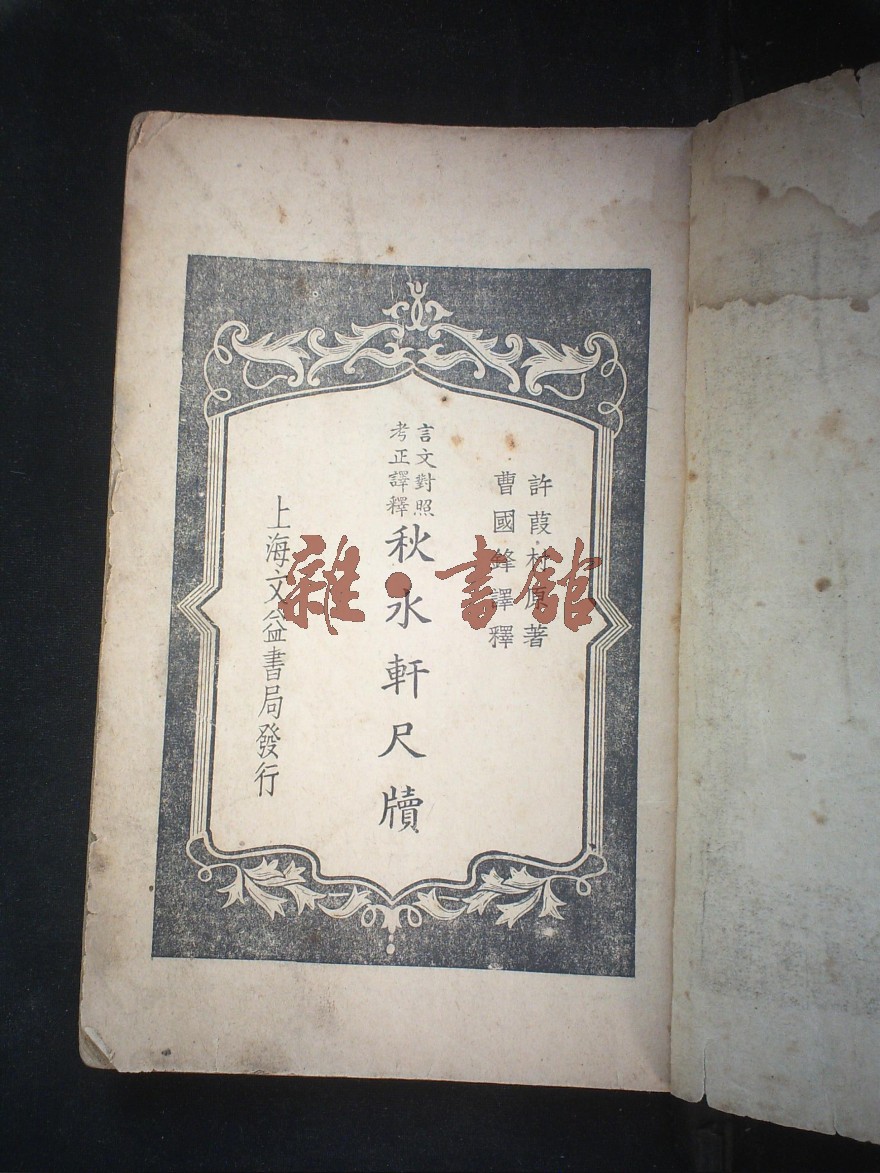 許葭村原著
曹國鋒譯釋
言文對照
考正譯釋
秋水軒尺牘
上海文益書局發行
雜·書館